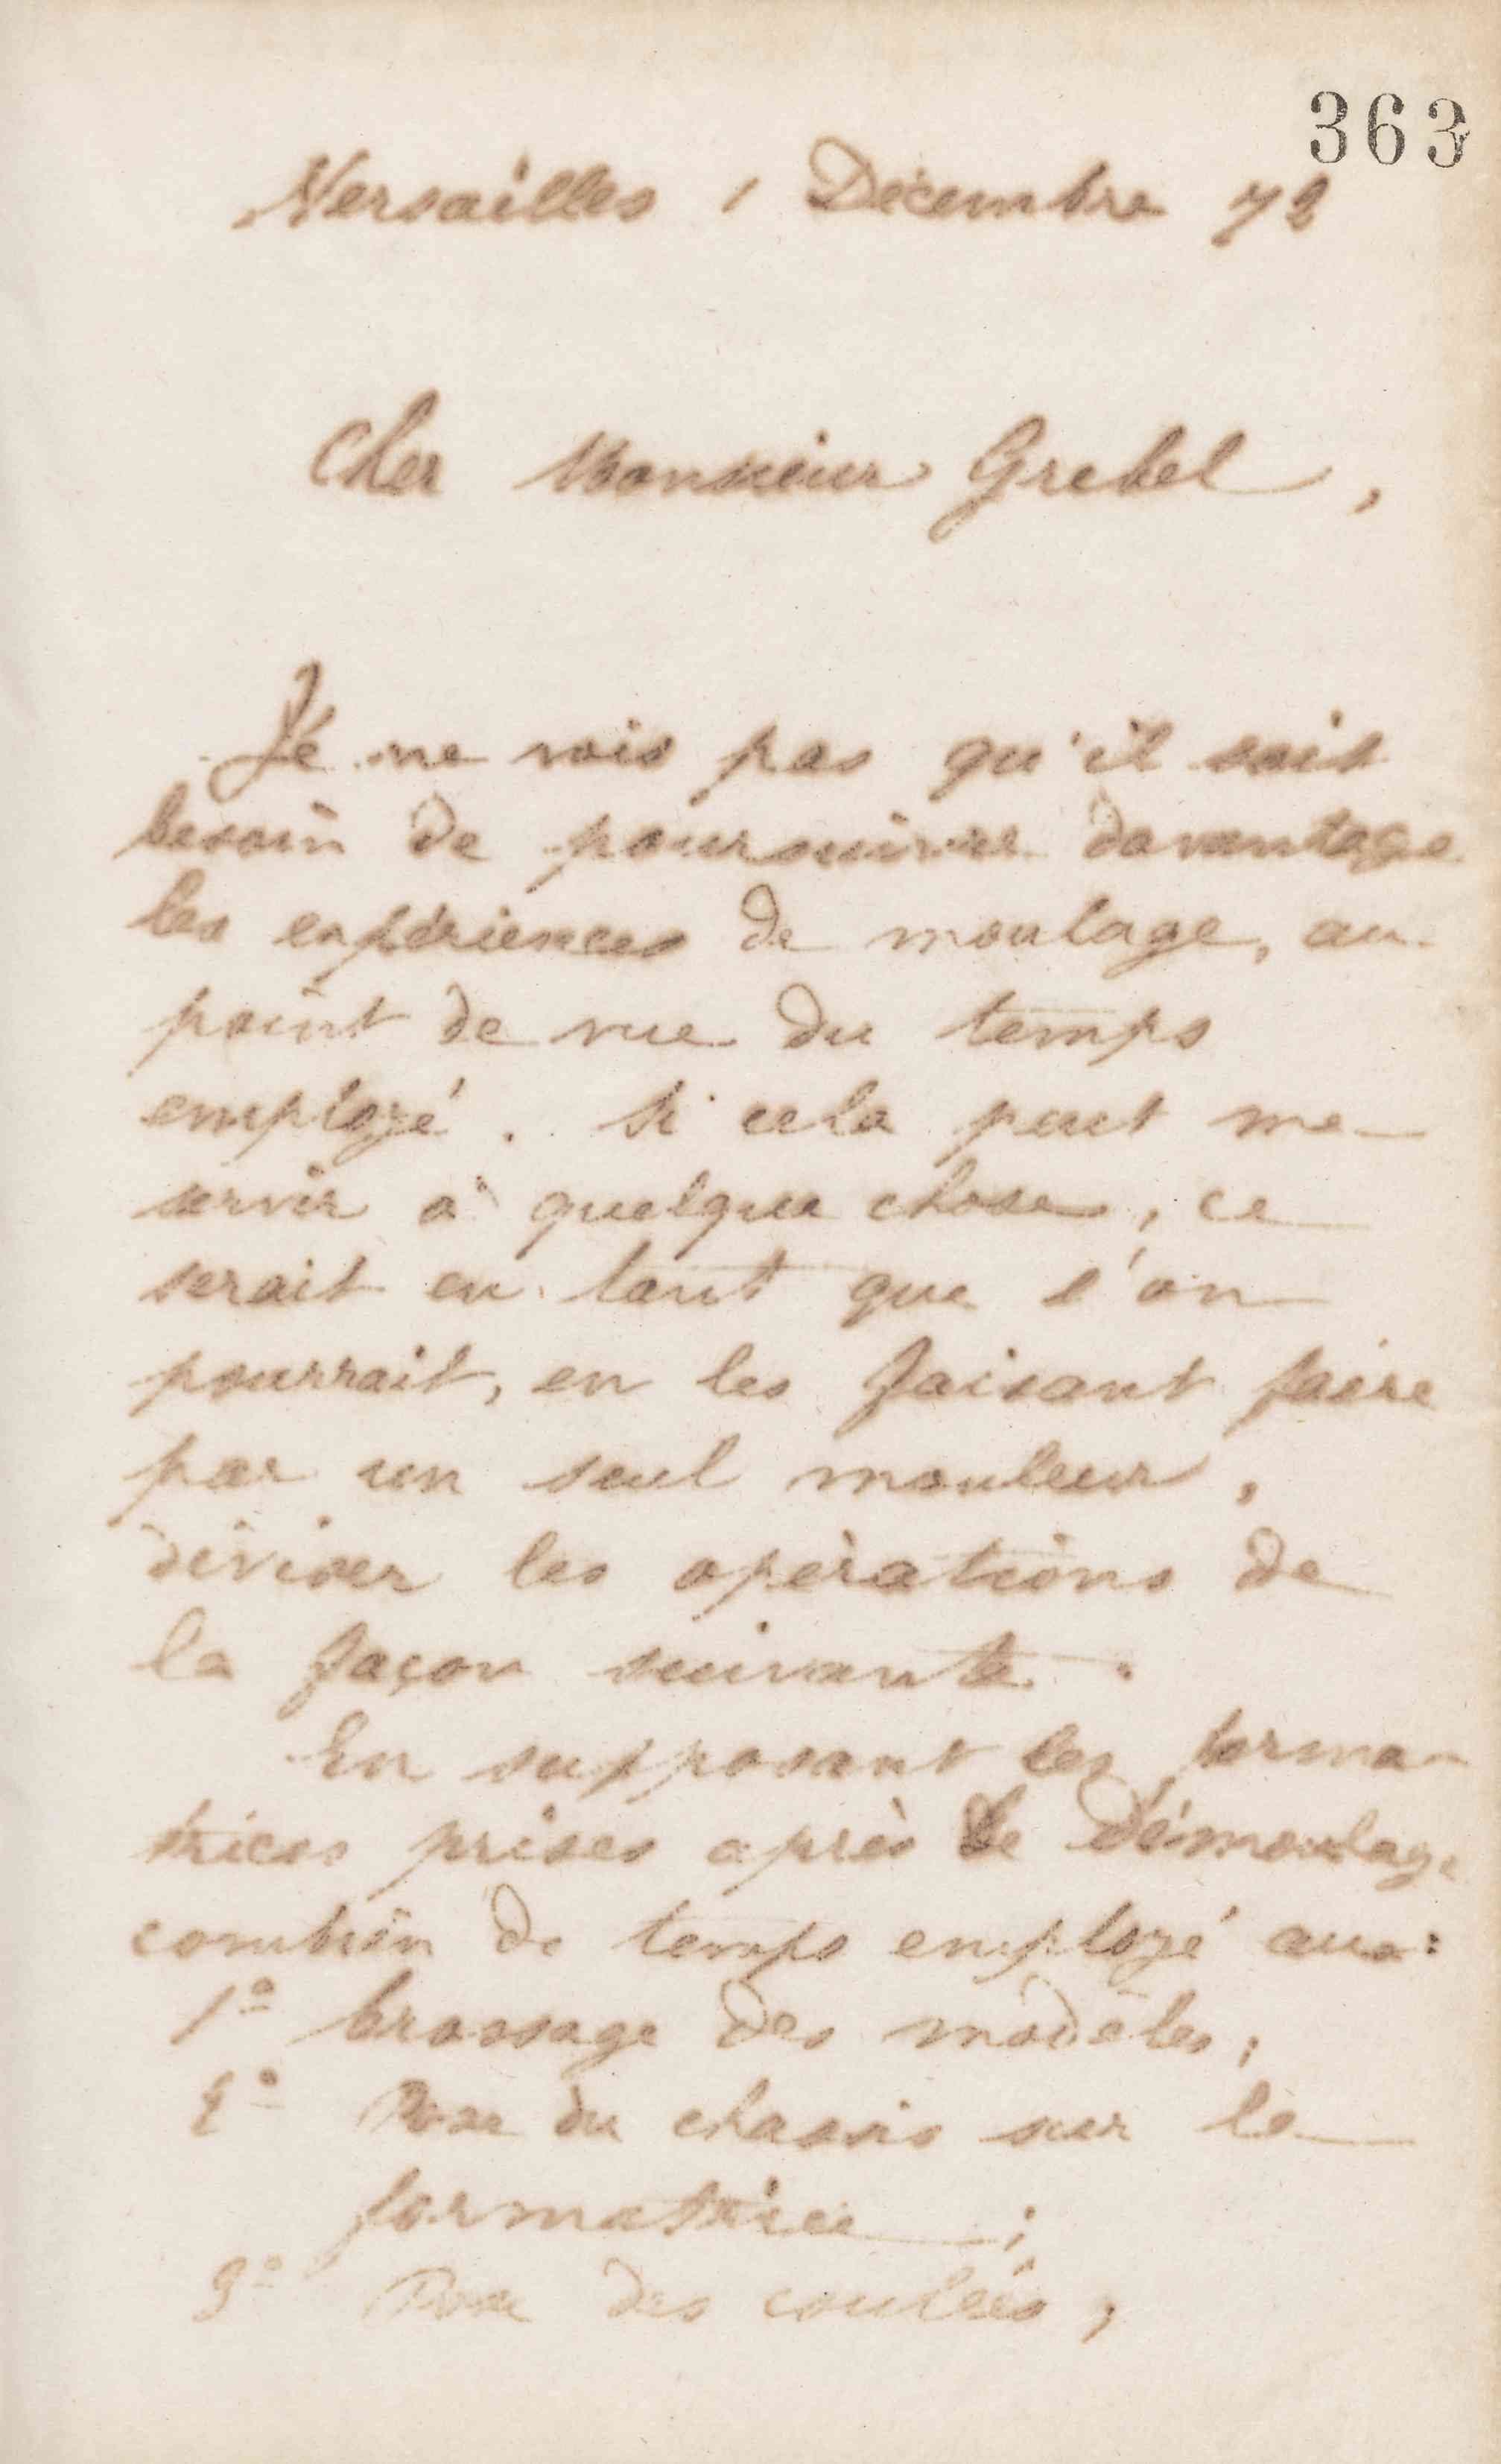 363
Versailles 1 Décembre 72
Cher Monsieur Grebel,
Je ne vois pas qu'il soit
besoin de poursuivre davantage
les expériences de moulage, au
point de vue du temps
employé. Si cela peut me
servir à quelque chose, ce
serait en tant que l'on
pourrait, en les faisant faire
par un seul mouleur,
diviser les opérations de
la façon suivante.
En supposant les forma-
trices prises après le démoulage
combien de temps employé aux:
1º brossage des modèles;
2º Pose du chassis sur la
formatrice;
3º Pose des coulées;